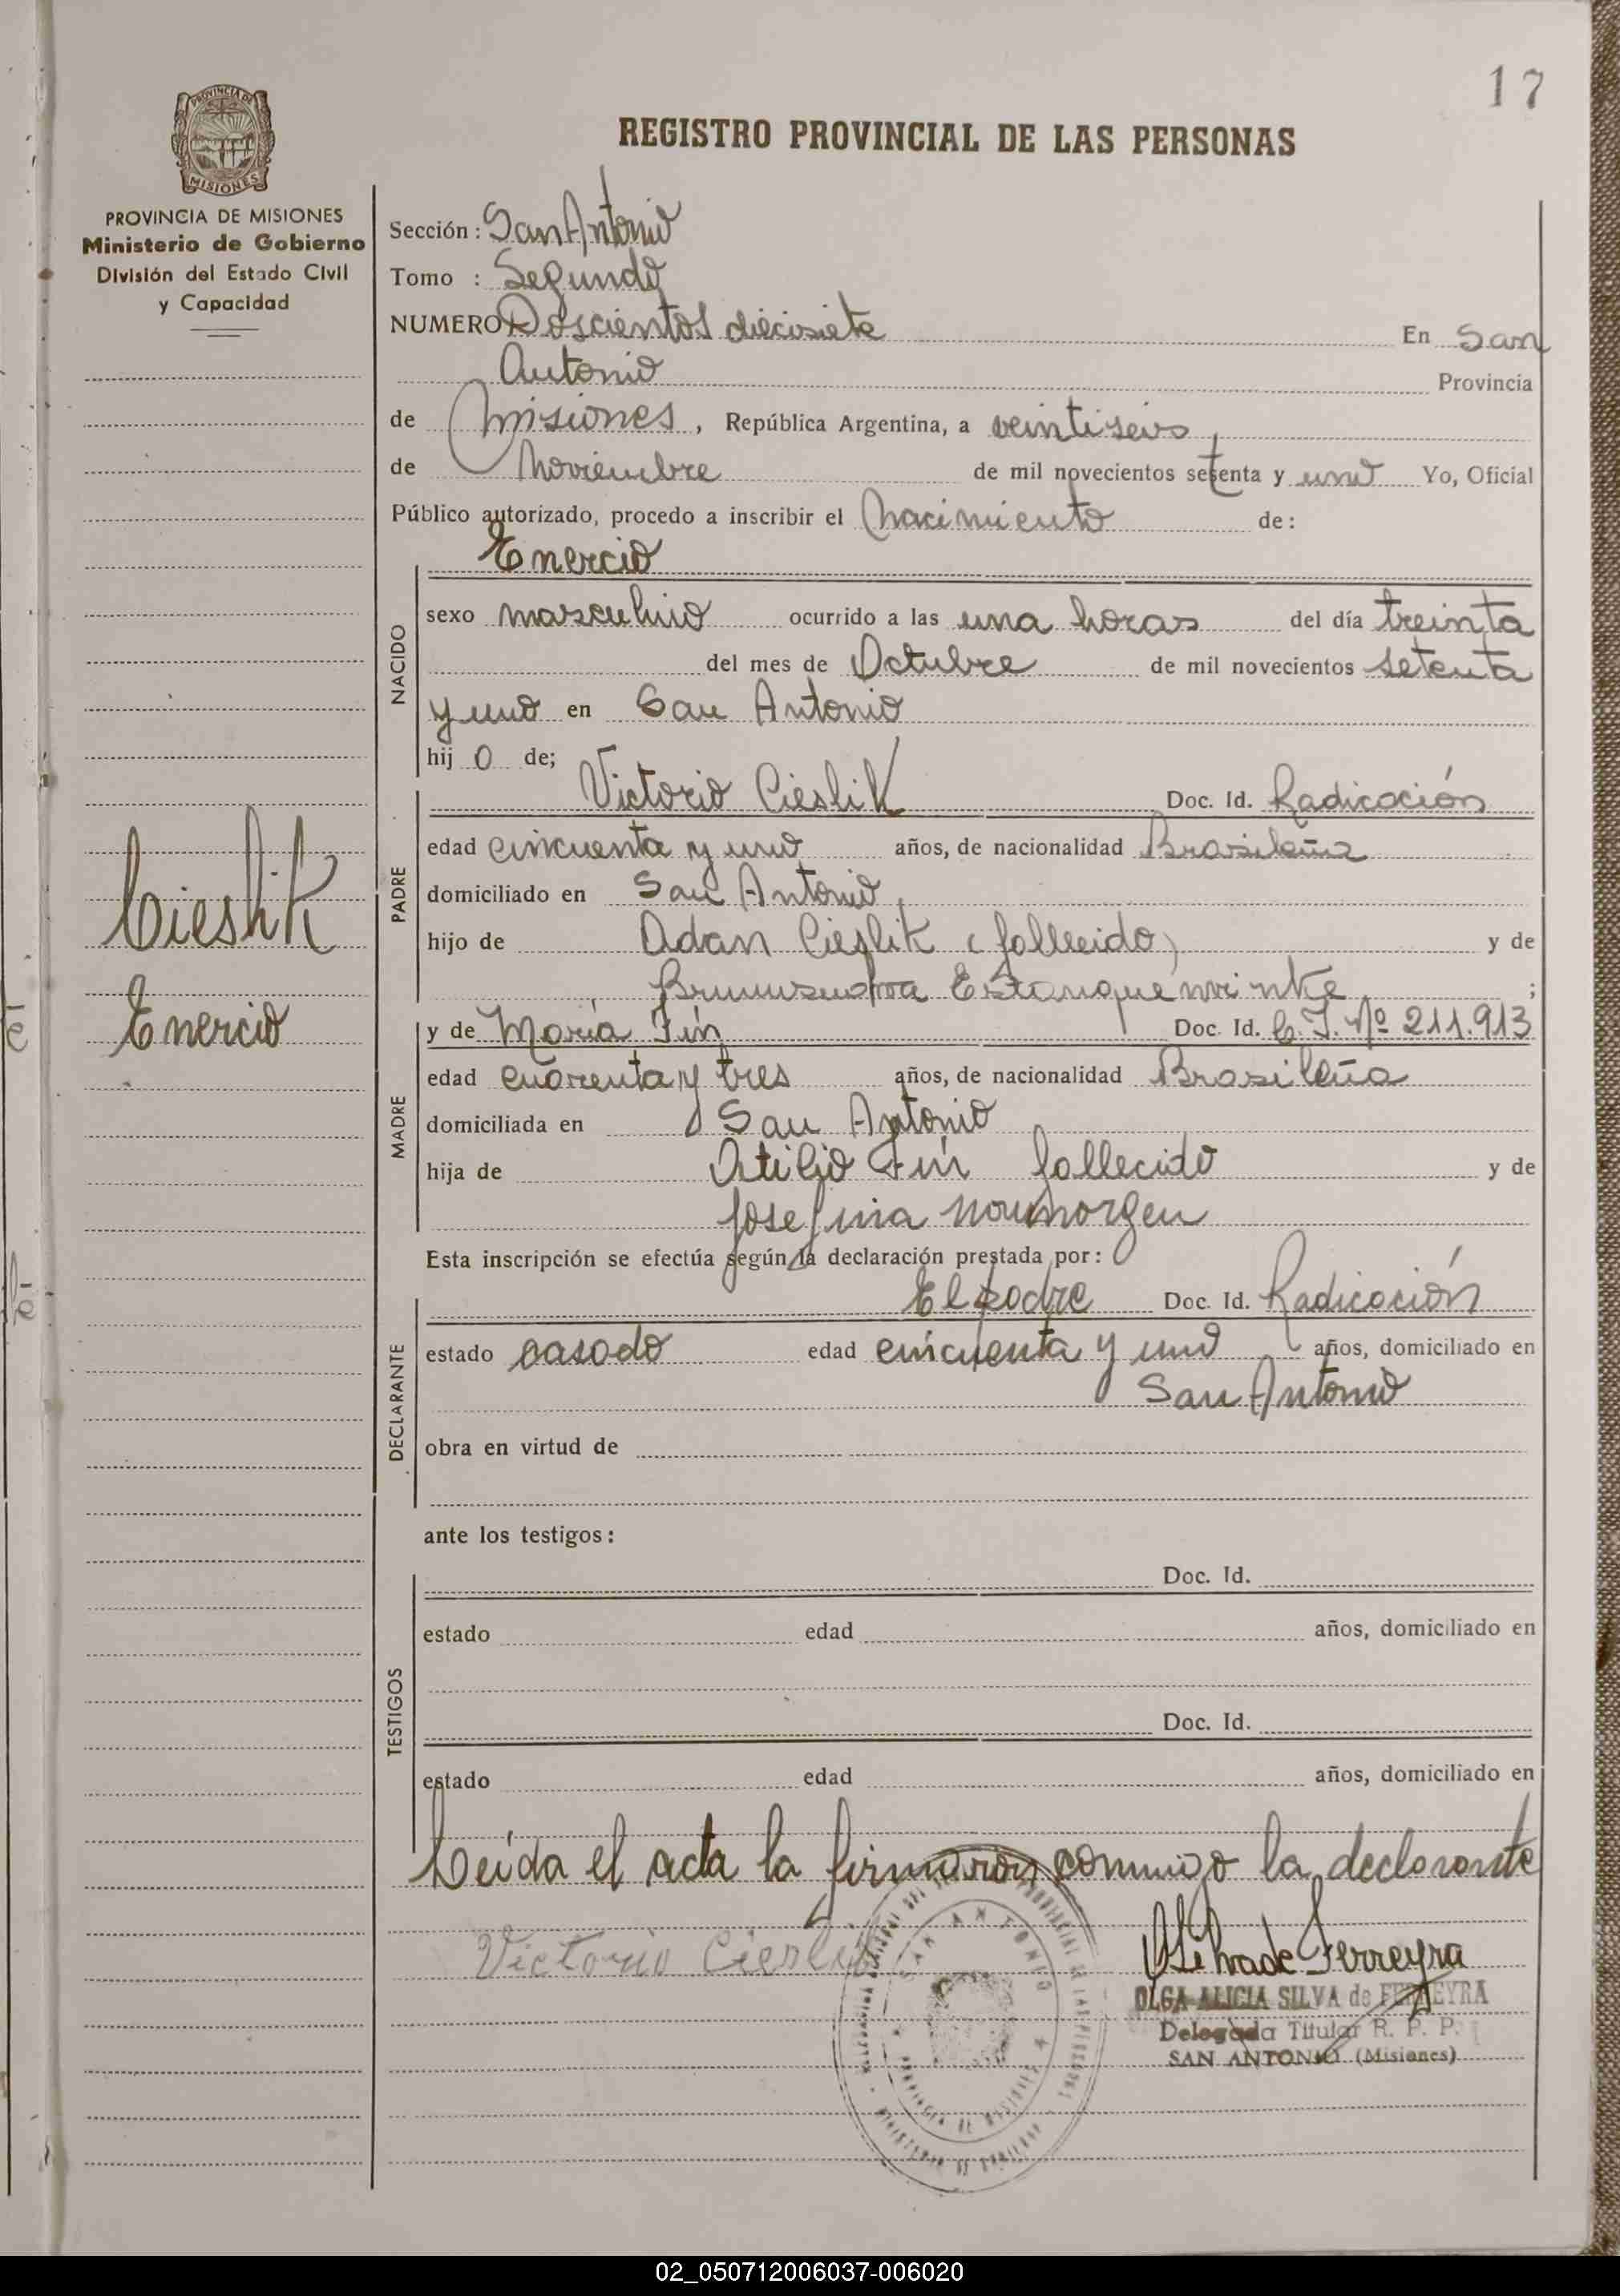 17
REGISTRO PROVINCIAL DE LAS PERSONAS
PROVINCIA DE MISIONES
PROVINCIA DE MISIONES
Ministerio de Gobierno
División del Estado Civil
y Capacidad
Cieslik
Enercio
Sección: San Antonio
Tomo : Segundo
NUMERO Doscientos diecisiete En San
Antonio Provincia
de Misiones, República Argentina, a veintiseis
de Noviembre de mil novecientos setenta y uno Yo, Oficial
Público autorizado, procedo a inscribir el Nacimiento de:
Enercio
NACIDO
sexo masculino ocurrido a las una horas del día treinta
del mes de Octubre de mil novecientos setenta
y uno en San Antonio
hij o de;
PADRE
Victorio Cieslik Doc. Id. Radicación
edad cincuenta y uno años, de nacionalidad Brasileña
domiciliado en San Antonio
hijo de Adan Cieslik (fallecido) y de
;
MADRE
y de María Fin Doc. Id. C.I. Nº 211.913
edad cuarenta y tres años, de nacionalidad Brasileña
domiciliada en San Antonio
hija de Atilio Fin fallecido y de
Josefina
Esta inscripción se efectúa según la declaración prestada por:
DECLARANTE
El padre Doc. Id. Radicación
estado casado edad cincuenta y uno años, domiciliado en
San Antonio
obra en virtud de
ante los testigos:
TESTIGOS
Doc. Id.
estado edad años, domiciliado en
Doc. Id.
estado edad años, domiciliado en
Leída el acta la firmaron conmigo la declarante
Victorio Cieslik
SAN ANTONIO
PROVINCIA DE MISIONES
MINISTERIO DE GOBIERNO
OSilva de Ferreyra
OLGA ALICIA SILVA de FERREYRA
Delegada Titular R. P. P.
SAN ANTONIO (Misiones)
02_050712006037-006020